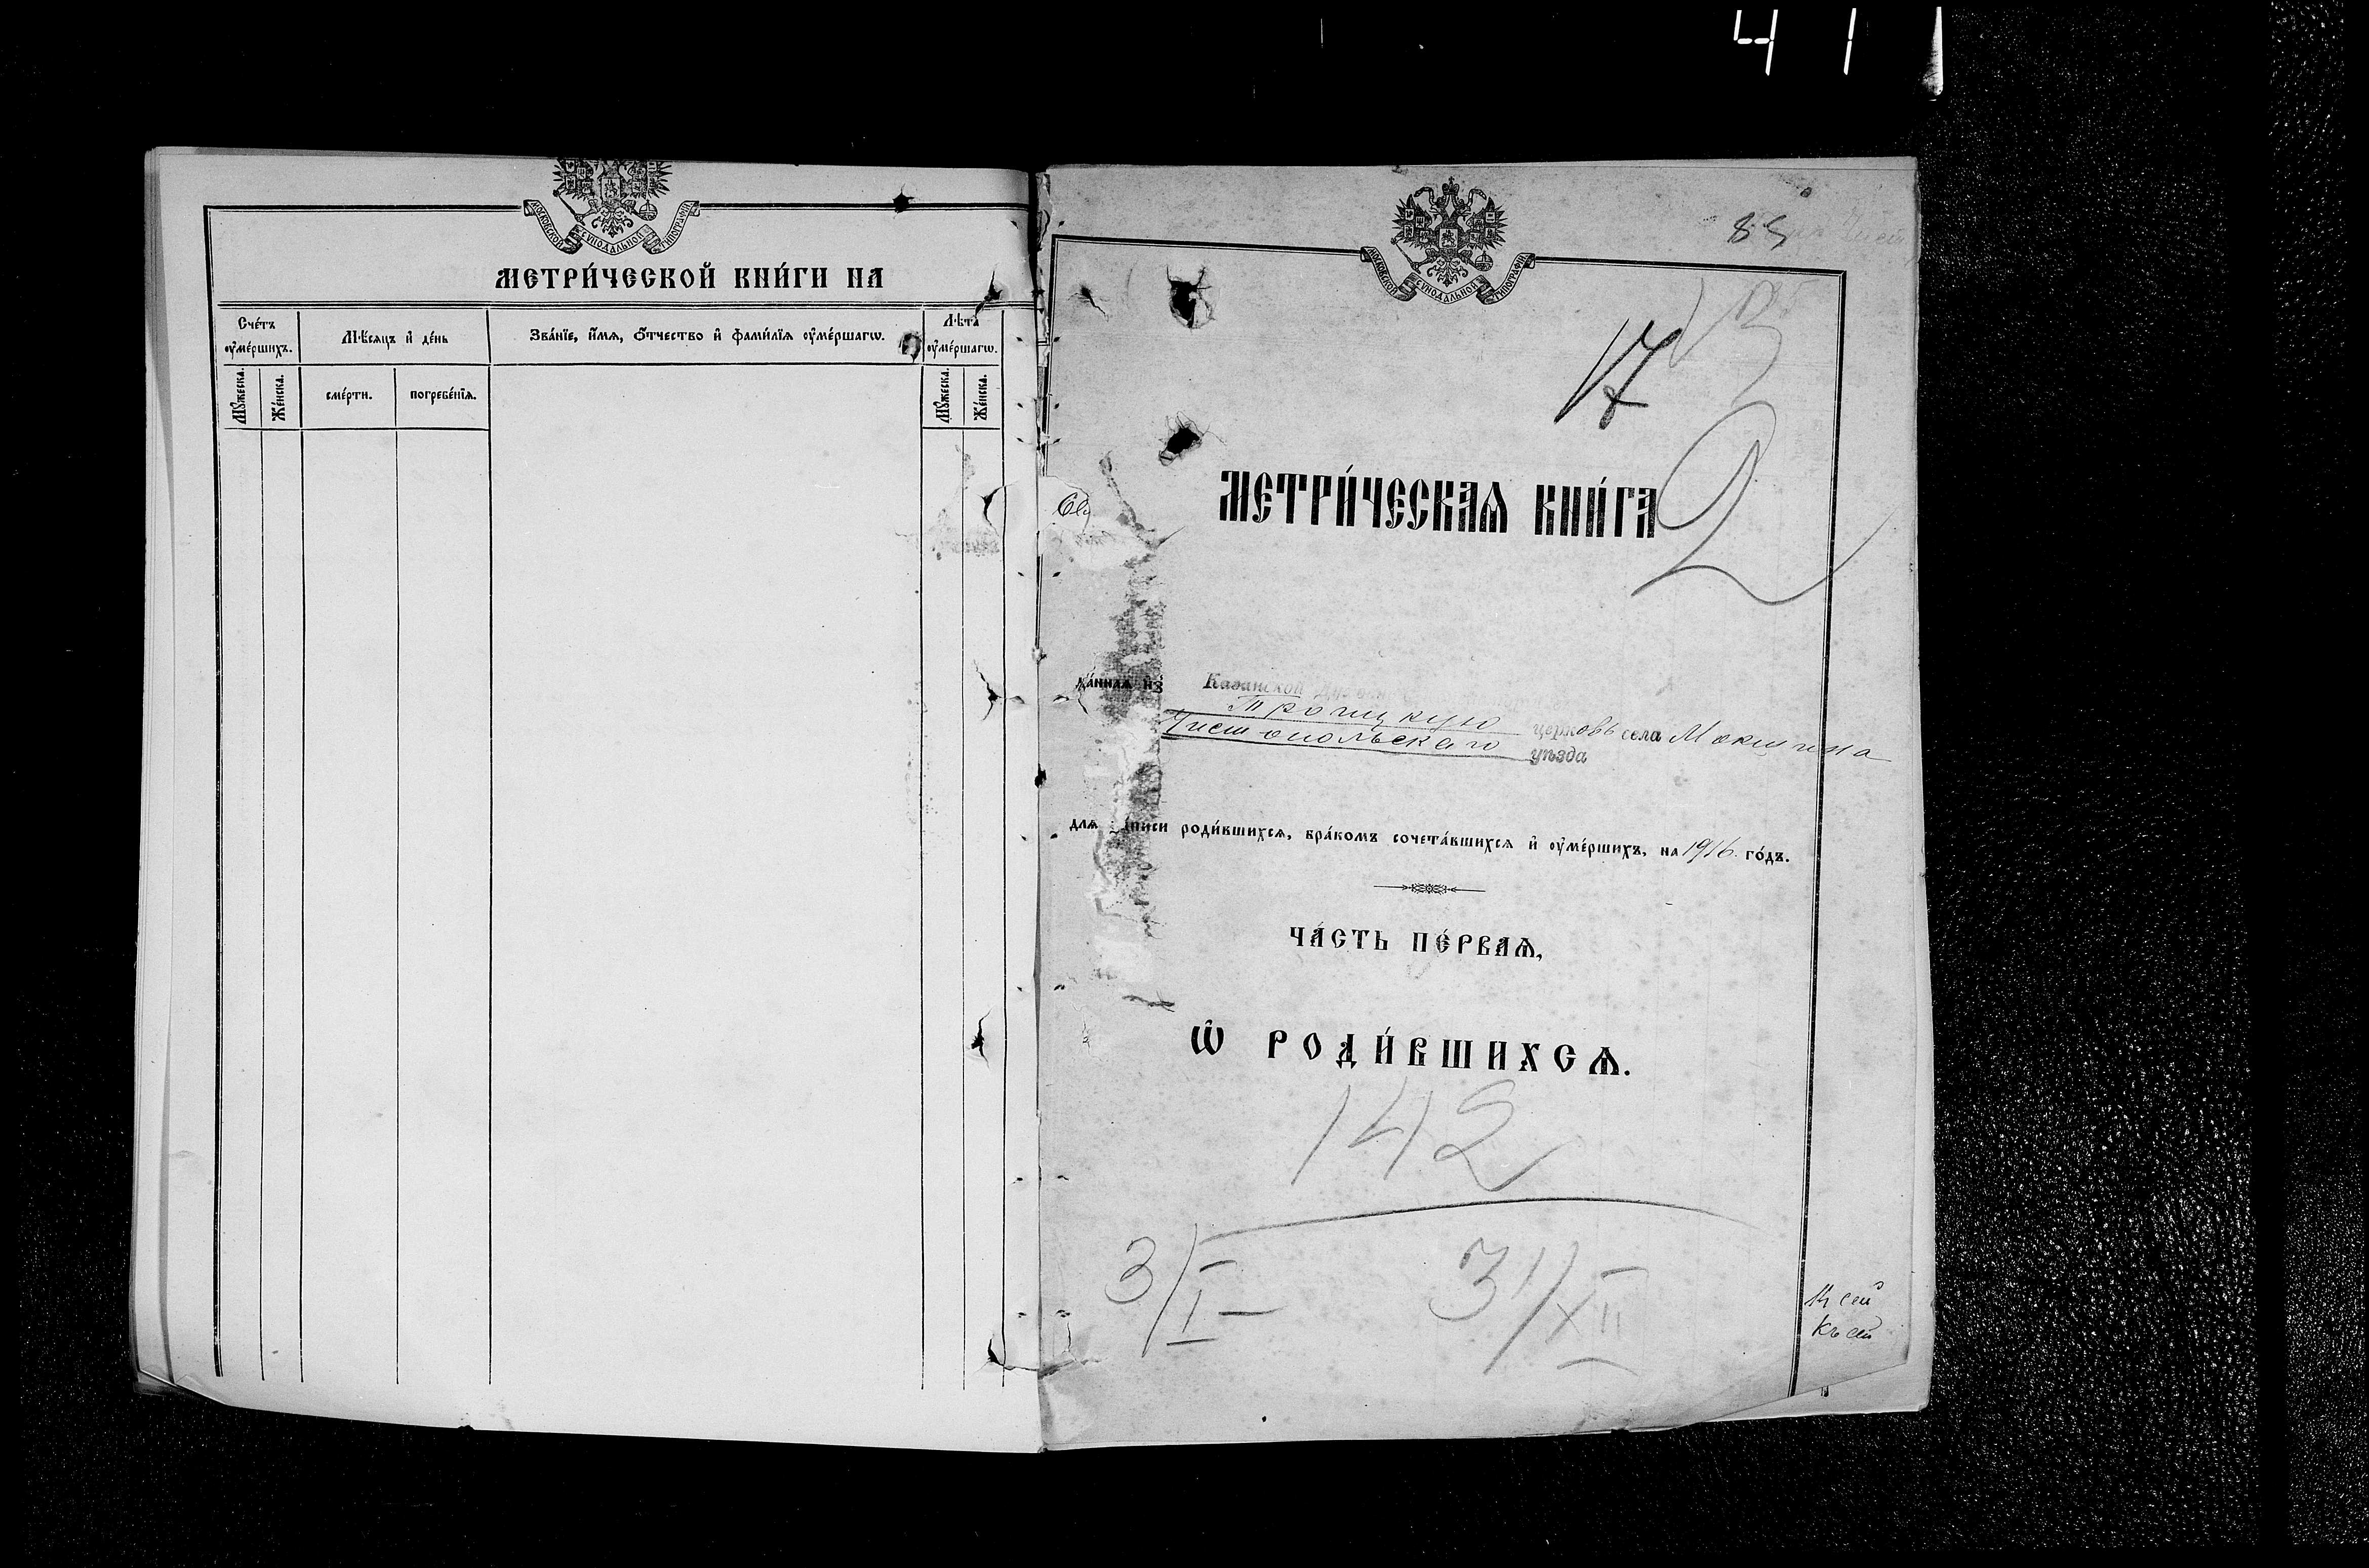 41
МОСКОВСКОЙ СѴНОДАЛЬНОЙ ТИПОГРАФІИ
МЕТРИ́ЧЕСКОЙ КНИ́ГИ НА
Сче́тъ ᲂу҆ме́ршихъ.
Мѣ́сяцъ и҆ де́нь
Зва́нїе, и҆́мѧ, ѻ҆́тчество и҆ фами́лїѧ ᲂу҆ме́ршагѡ.
Лѣ́та ᲂу҆ме́ршагѡ.
Мꙋ́жеска.
Же́нска.
сме́рти.
погребе́нїѧ.
Мꙋ́жеска.
Же́нска.
МОСКОВСКОЙ СѴНОДАЛЬНОЙ ТИПОГРАФІИ
85
17
2
МЕТРИ́ЧЕСКАѦ КНИ́ГА
да́ннаѧ и҆з̾ Казанской
Троицкую церковь села Мокшина
Чистопольскаго уѣзда
длѧ роди́вшихсѧ, бра́комъ сочета́вшихсѧ и҆ ᲂу҆ме́ршихъ, на 1916 го́дъ.
ЧА́СТЬ ПЕ́РВАѦ,
Ѽ РОДИ́ВШИХСѦ.
142
3/I 31/XII
К сей
Къ сей